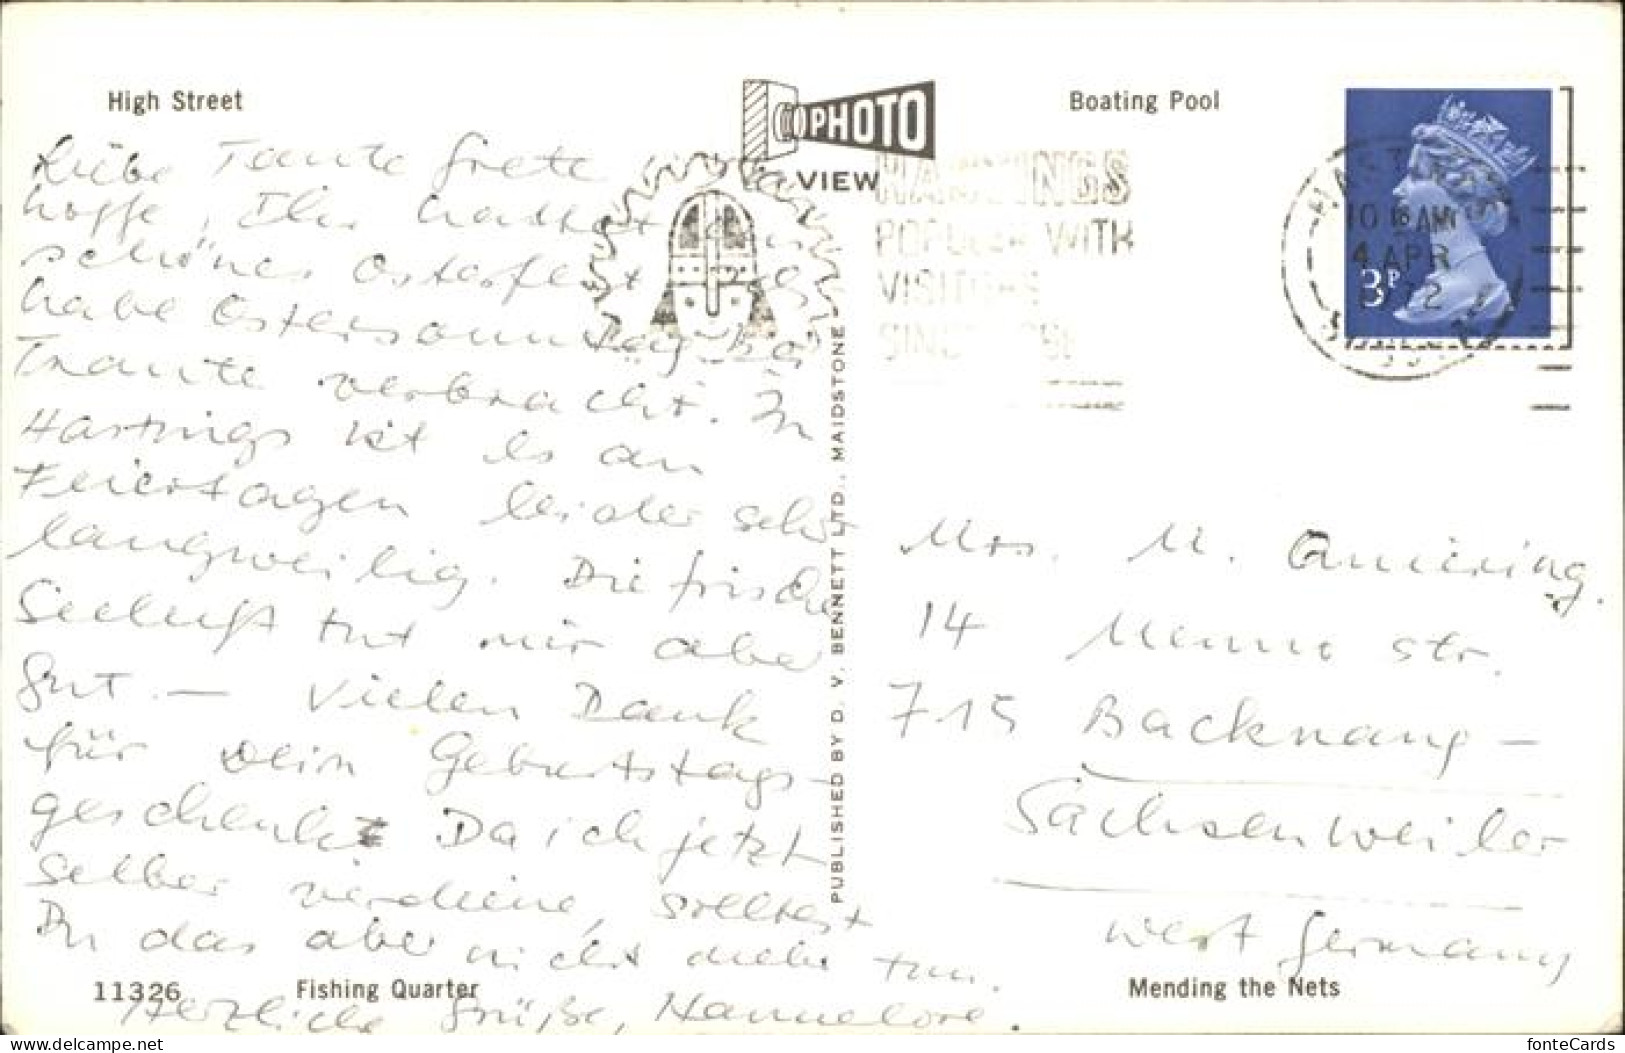 High Street
PHOTO
VIEW
Boating Pool
Liebe Tante Grete, ich
hoffe, Ihr hattet ein
schönes Osterfest. Ich
habe Ostersonntag bei
Traute verbracht. In
Hastings ist es an
Feiertagen leider sehr
langweilig. Die frische
Seeluft tut mir aber
gut. — Vielen Dank
für Dein Geburtstags-
geschenk. Da ich jetzt
selber verdiene, solltest
Du das aber nicht mehr tun.
Herzliche Grüße, Hannelore.
HASTINGS
POPULAR WITH
VISITORS
SINCE
HASTINGS
10 AM
4 APR
3P
PUBLISHED BY D. V. BENNETT LTD., MAIDSTONE
Mrs. M.
14 str.
715 Backnang –
Sachsenweiler
West Germany
11326
Fishing Quarter
Mending the Nets
fonteCards